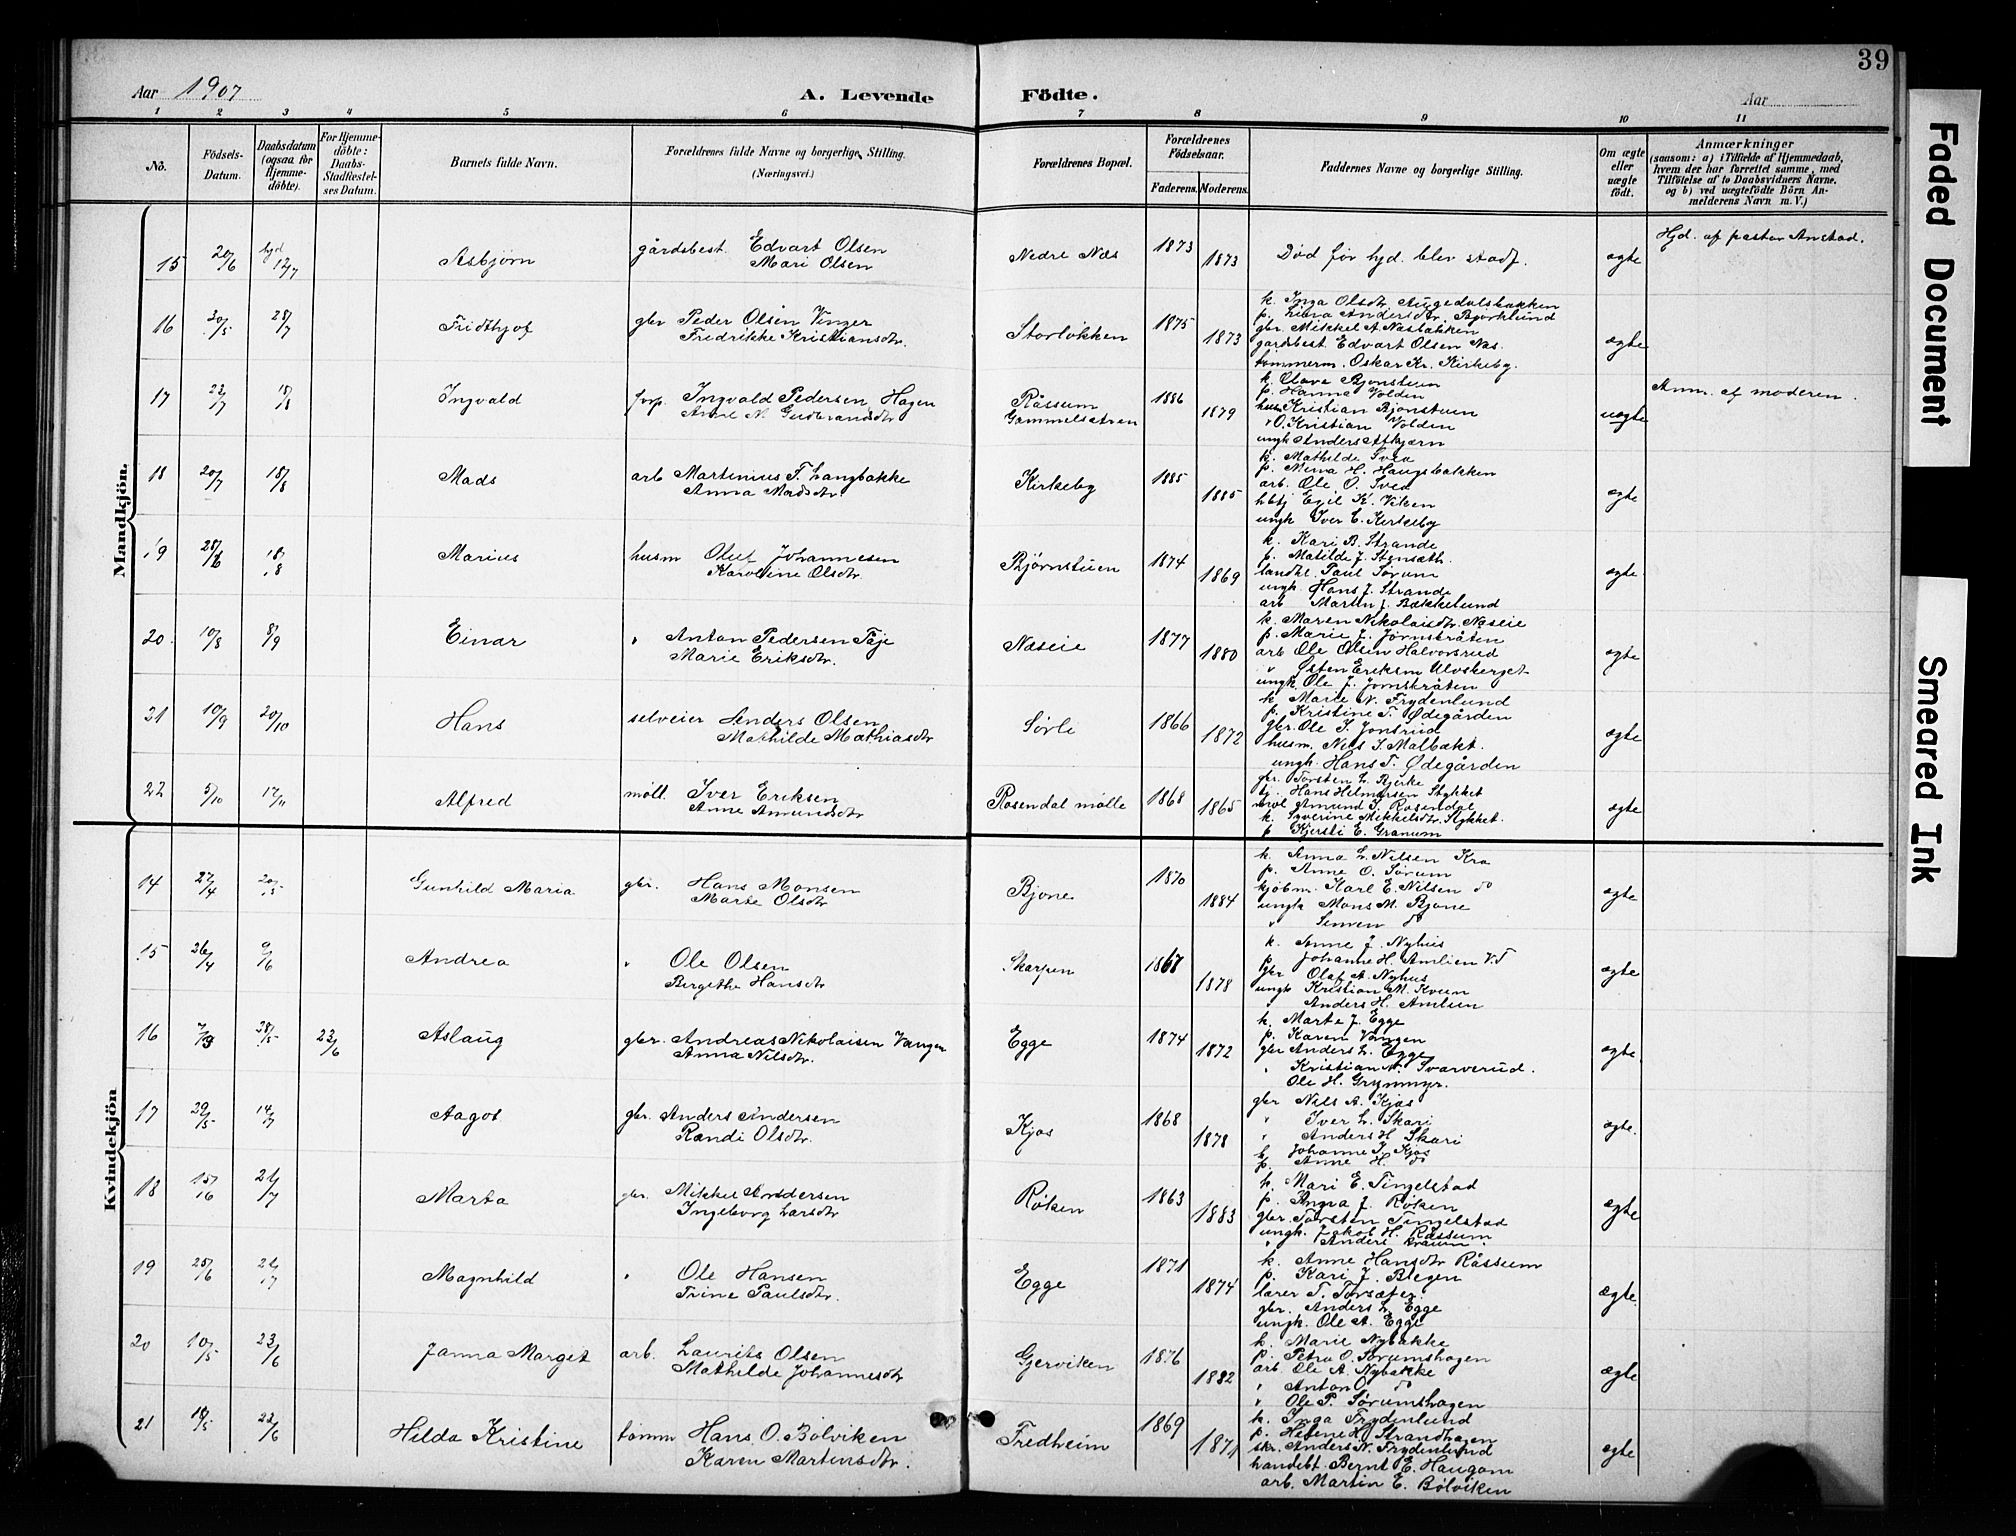 39
Aar 1907
A. Levende
Födte.
Aar
1 2 3 4 5 6 7 8 9 10 11
No.
Födsels-Datum.
Daabsdatum (ogsaa for Hjemmedöbte).
For Hjemmedöbte: Daabs-Stadfæstelses Datum.
Barnets fulde Navn.
Forældrenes fulde Navne og borgerlige Stilling. (Næringsvei.)
Forældrenes Bopæl.
Forældrenes Födselsaar.
Faderens. Moderens.
Faddernes Navne og borgerlige Stilling.
Om ægte eller uægte födt.
Anmærkninger
(saasom: a) i Tilfælde af Hjemmedaab, hvem der har forrettet samme, med Tilföielse af to Daabsvidners Navne, og b) ved uægtefödte Börn Anmelderens Navn m. V.)
Mandkjön.
15 20/6 hjd 12/7 Asbjørn gårdsbest. Edvart Olsen
Mari Olsen
Nedre Næs 1873 1873 Død før hjd. blev stadf. ægte Hjd. af pastor Anstad.
16 30/5 28/7 Fridthjof gbr Peder Olsen Vinger
Fredrikke Kristiansdtr.
Storløkken 1875 1873
k. Inga Olsdtr. Augedalsbakken
p. Lina Andersdtr. Bjørklund
gbr. Mikkel A. Næsbakken
gårdsbest Edvart Olsen Næs.
tømmerm. Oskar Kr. Kirkeby.
ægte
17 22/7 18/8 Ingvald forp. Ingvald Pedersen Hagen
Anne M. Gudbrandsdtr
Råssum
Gammelsætren
1886 1879
k. Olava Bjonstuen
p. Hanna Volden
husm Kristian Bjonstuen
O. Kristian Volden
ungk Anders
uægte Anm. af moderen.
18 20/7 18/8 Mads arb Martinius T. Langbakke
Anna Madsdtr.
Kirkeby 1885 1885
k. Mathilde Svea
p. Mina H. Haugsbakken
arb. Ole O. Svea
Egil K. Viken
ungk Iver E. Kirkeby
ægte
19 28/6 18/8 Marius husm Oluf Johannesen
Karoline Olsdtr.
Bjørnstuen 1874 1869
k. Kari B. Strande
p. Matilde J. Stensæth.
landhl. Paul Sørum
ungk. Hans J. Strande
arb Martin J. Bækkelund
ægte
20 10/8 8/9 Einar " Anton Pedersen Taje
Marie Eriksdtr.
Næseie 1877 1880
k. Maren Nikolaisdtr. Næseie
p. Marie J. Jørnsbråten
arb Ole Olsen Halvorsrud
" Østen Eriksen Ulvsberget
ungk. Ole J. Jørnsbråten
ægte
21 10/9 20/10 Hans selveier Anders Olsen
Mathilde Mathiasdtr
Sørli 1866 1872
k. Marte N. Frydenlund
p. Kristine T. Ødegården
gbr. Ole I. Jonsrud
husm. Nels I. Malbakt.
ungk. Hans T. Ødegården
ægte
22 5/10 17/11 Alfred møll. Iver Eriksen
Anne Amundsdtr
Rosendal mølle 1868 1865
gbr. Torsten L. Bjerke
tj. Hans Helmersen Stykket
møl Amund I. Rosendal
k. Syverine Mikkelsdtr. Stykket.
p. Kjersti E. Granum
ægte
Kvindekjön
14 27/4 20/5 Gunhild Maria gbr. Hans Monsen
Marte Olsdtr
Bjone 1870 1884
k. Anna L. Nilsen Kra
p. Anne O. Sørum
kjøbm. Karl E. Nilsen do
ungk Mons M. Bjone
" Simen do
ægte
15 26/4 9/6 Andrea " Ole Olsen
Bergithe Hansdtr
Skarpen 1867 1878
k. Anne J. Nyhus
p. Johanne H. Amlien V.T
gbr Olaf A. Nyhus
ungk Kristian M. Kvem
" Anders H. Amlien
ægte
16 7/3 28/5 23/6 Aslaug gbr. Andreas Nikolaisen Vangen
Anna Nilsdtr.
Egge 1874 1872
k. Marte J. Egge
p. Karen Vangen
gbr Anders L. Egge
" Kristian A. Svarverud.
Ole H. Grymmyr.
ægte
17 29/5 14/7 Aagot gbr. Anders Andersen
Randi Olsdtr.
Kjos 1868 1878
gbr Nils A. Kjos
" Iver L. Skari
" Anders H Skari
k. Johanne I. Kjos
p. Anne H. do
ægte.
18 15/16 21/7 Marta gbr. Mikkel Andersen
Ingeborg Larsdtr
Røken 1863 1883
k. Mari E. Tingelstad
p. Angna J. Røken
gbr. Torsten Tingelstad
ungk. Jakob H. Råssum
" Anders
ægte
19 25/6 21/7 Magnhild " Ole Hansen
Trine Paulsdtr.
Egge 1871 1874
k. Anne Hansdtr Råssum
p. Kari J. Blegen
lærer T. Torsæter.
gbr. Anders L. Egge
ungk. Ole A. Egge
ægte.
20 10/5 23/6 Janna Marget arb. Laurits Olsen
Mathilde Johannesdtr
Gjerviken 1876 1882
k. Marie Nybakke
p. Petra O. Sørumshagen
arb Ole A. Nybakke
" Anton O do
" Ole P. Sørumshagen
ægte
21 18/5 23/6 Hilda Kristine tømm Hans O. Bølviken
Karen Martinsdtr.
Fredheim 1869 1871
k. Inga Frydenlund
p. Helene H. Strandhagen
skr. Anders N. Frydenlund
handebt. Bernt E. Haugom
arb. Martin E. Bølviken
ægte
Faded Document
Smeared Ink